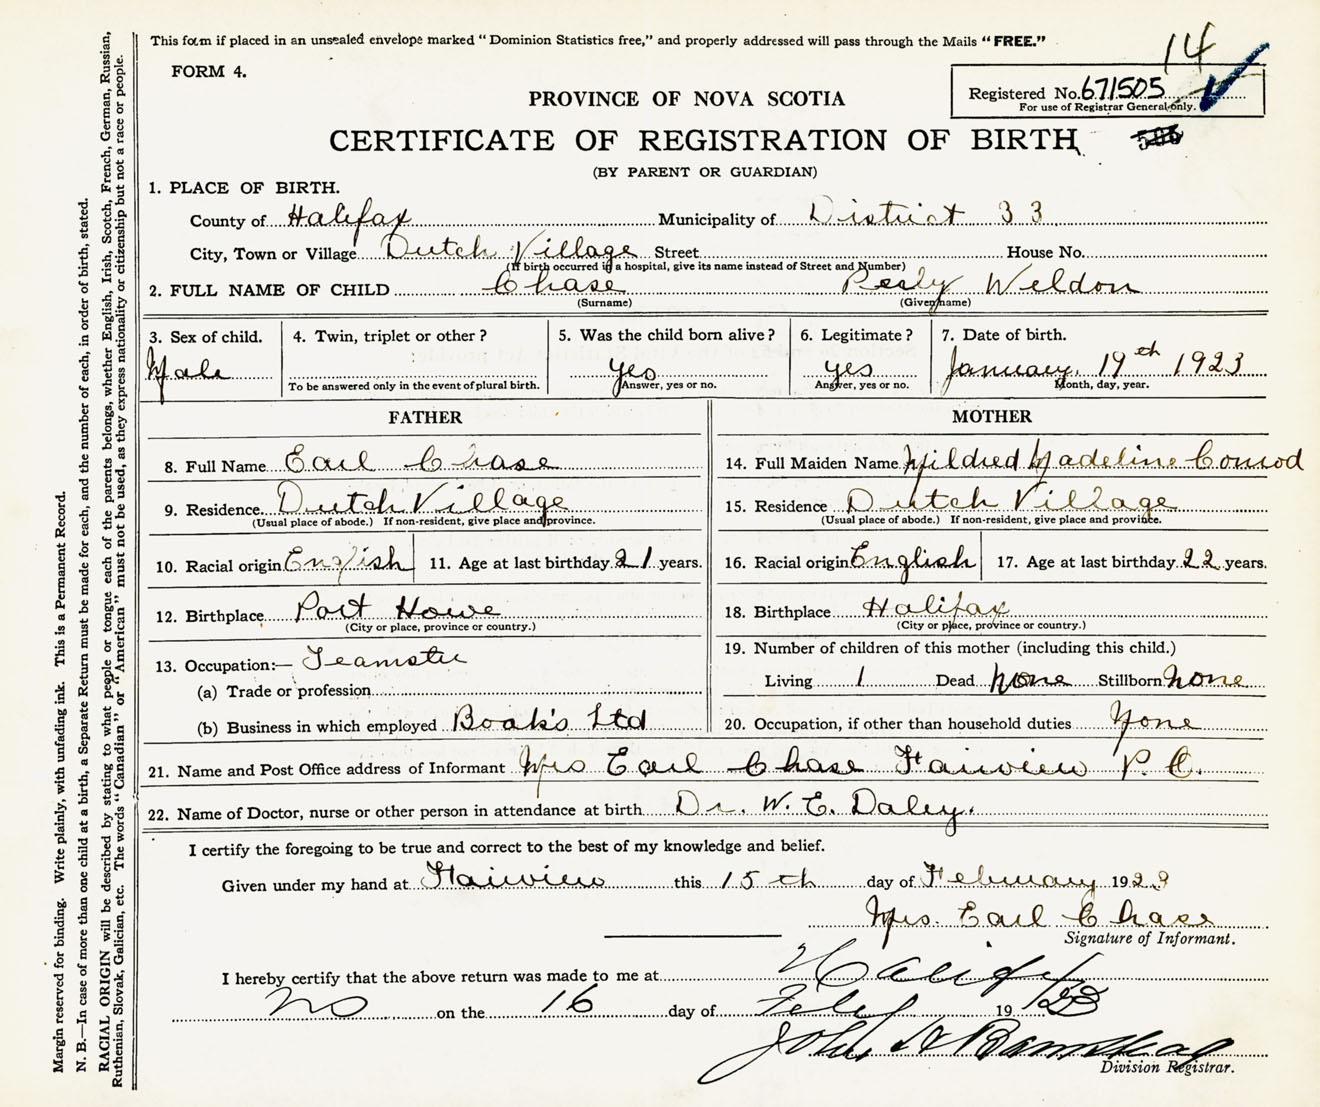 This form if placed in an unsealed envelope marked "Dominion Statistics free," and properly addressed will pass through the Mails "FREE."
14
FORM 4.
Registered No. 671505
For use of Registrar General only.
PROVINCE OF NOVA SCOTIA
CERTIFICATE OF REGISTRATION OF BIRTH
(BY PARENT OR GUARDIAN)
1. PLACE OF BIRTH.
County of Halifax Municipality of District 33
City, Town or Village Dutch Village Street House No.
(If birth occurred in a hospital, give its name instead of Street and Number)
2. FULL NAME OF CHILD Chase Weldon
(Surname) (Given name)
3. Sex of child. 4. Twin, triplet or other? 5. Was the child born alive? 6. Legitimate? 7. Date of birth.
Male yes yes January 19th 1923
To be answered only in the event of plural birth. Answer, yes or no. Answer, yes or no. Month, day, year.
FATHER MOTHER
8. Full Name Earl Chase 14. Full Maiden Name Mildred Madeline Conrod
9. Residence. Dutch Village 15. Residence Dutch Village
(Usual place of abode.) If non-resident, give place and province. (Usual place of abode.) If non-resident, give place and province.
10. Racial origin English 11. Age at last birthday 21 years. 16. Racial origin English 17. Age at last birthday 22 years.
12. Birthplace Port Howe 18. Birthplace Halifax
(City or place, province or country.) (City or place, province or country.)
13. Occupation:— Teamster 19. Number of children of this mother (including this child.)
(a) Trade or profession Living 1 Dead none Stillborn none
(b) Business in which employed Boak's Ltd 20. Occupation, if other than household duties None
21. Name and Post Office address of Informant Mrs Earl Chase Fairview P. O.
22. Name of Doctor, nurse or other person in attendance at birth Dr. W. E. Daley.
I certify the foregoing to be true and correct to the best of my knowledge and belief.
Given under my hand at Fairview this 15th day of February 1923
Mrs. Earl Chase
Signature of Informant.
I hereby certify that the above return was made to me at Halifax
NS on the 16 day of Feby 1923
John
Division Registrar.
Margin reserved for binding. Write plainly, with unfading ink. This is a Permanent Record.
N. B.—In case of more than one child at a birth, a Separate Return must be made for each, and the number of each, in order of birth, stated.
RACIAL ORIGIN will be described by stating to what people or tongue each of the parents belongs, whether English, Irish, Scotch, French, German, Russian,
Ruthenian, Slovak, Galician, etc. The words "Canadian" or "American" must not be used, as they express nationality or citizenship but not a race or people.